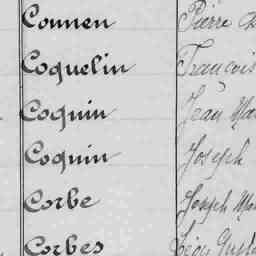 Connen Pierre
Coquelin François
Coquin Jean Mar
Coquin Joseph
Corbe Joseph Mar
Corbes